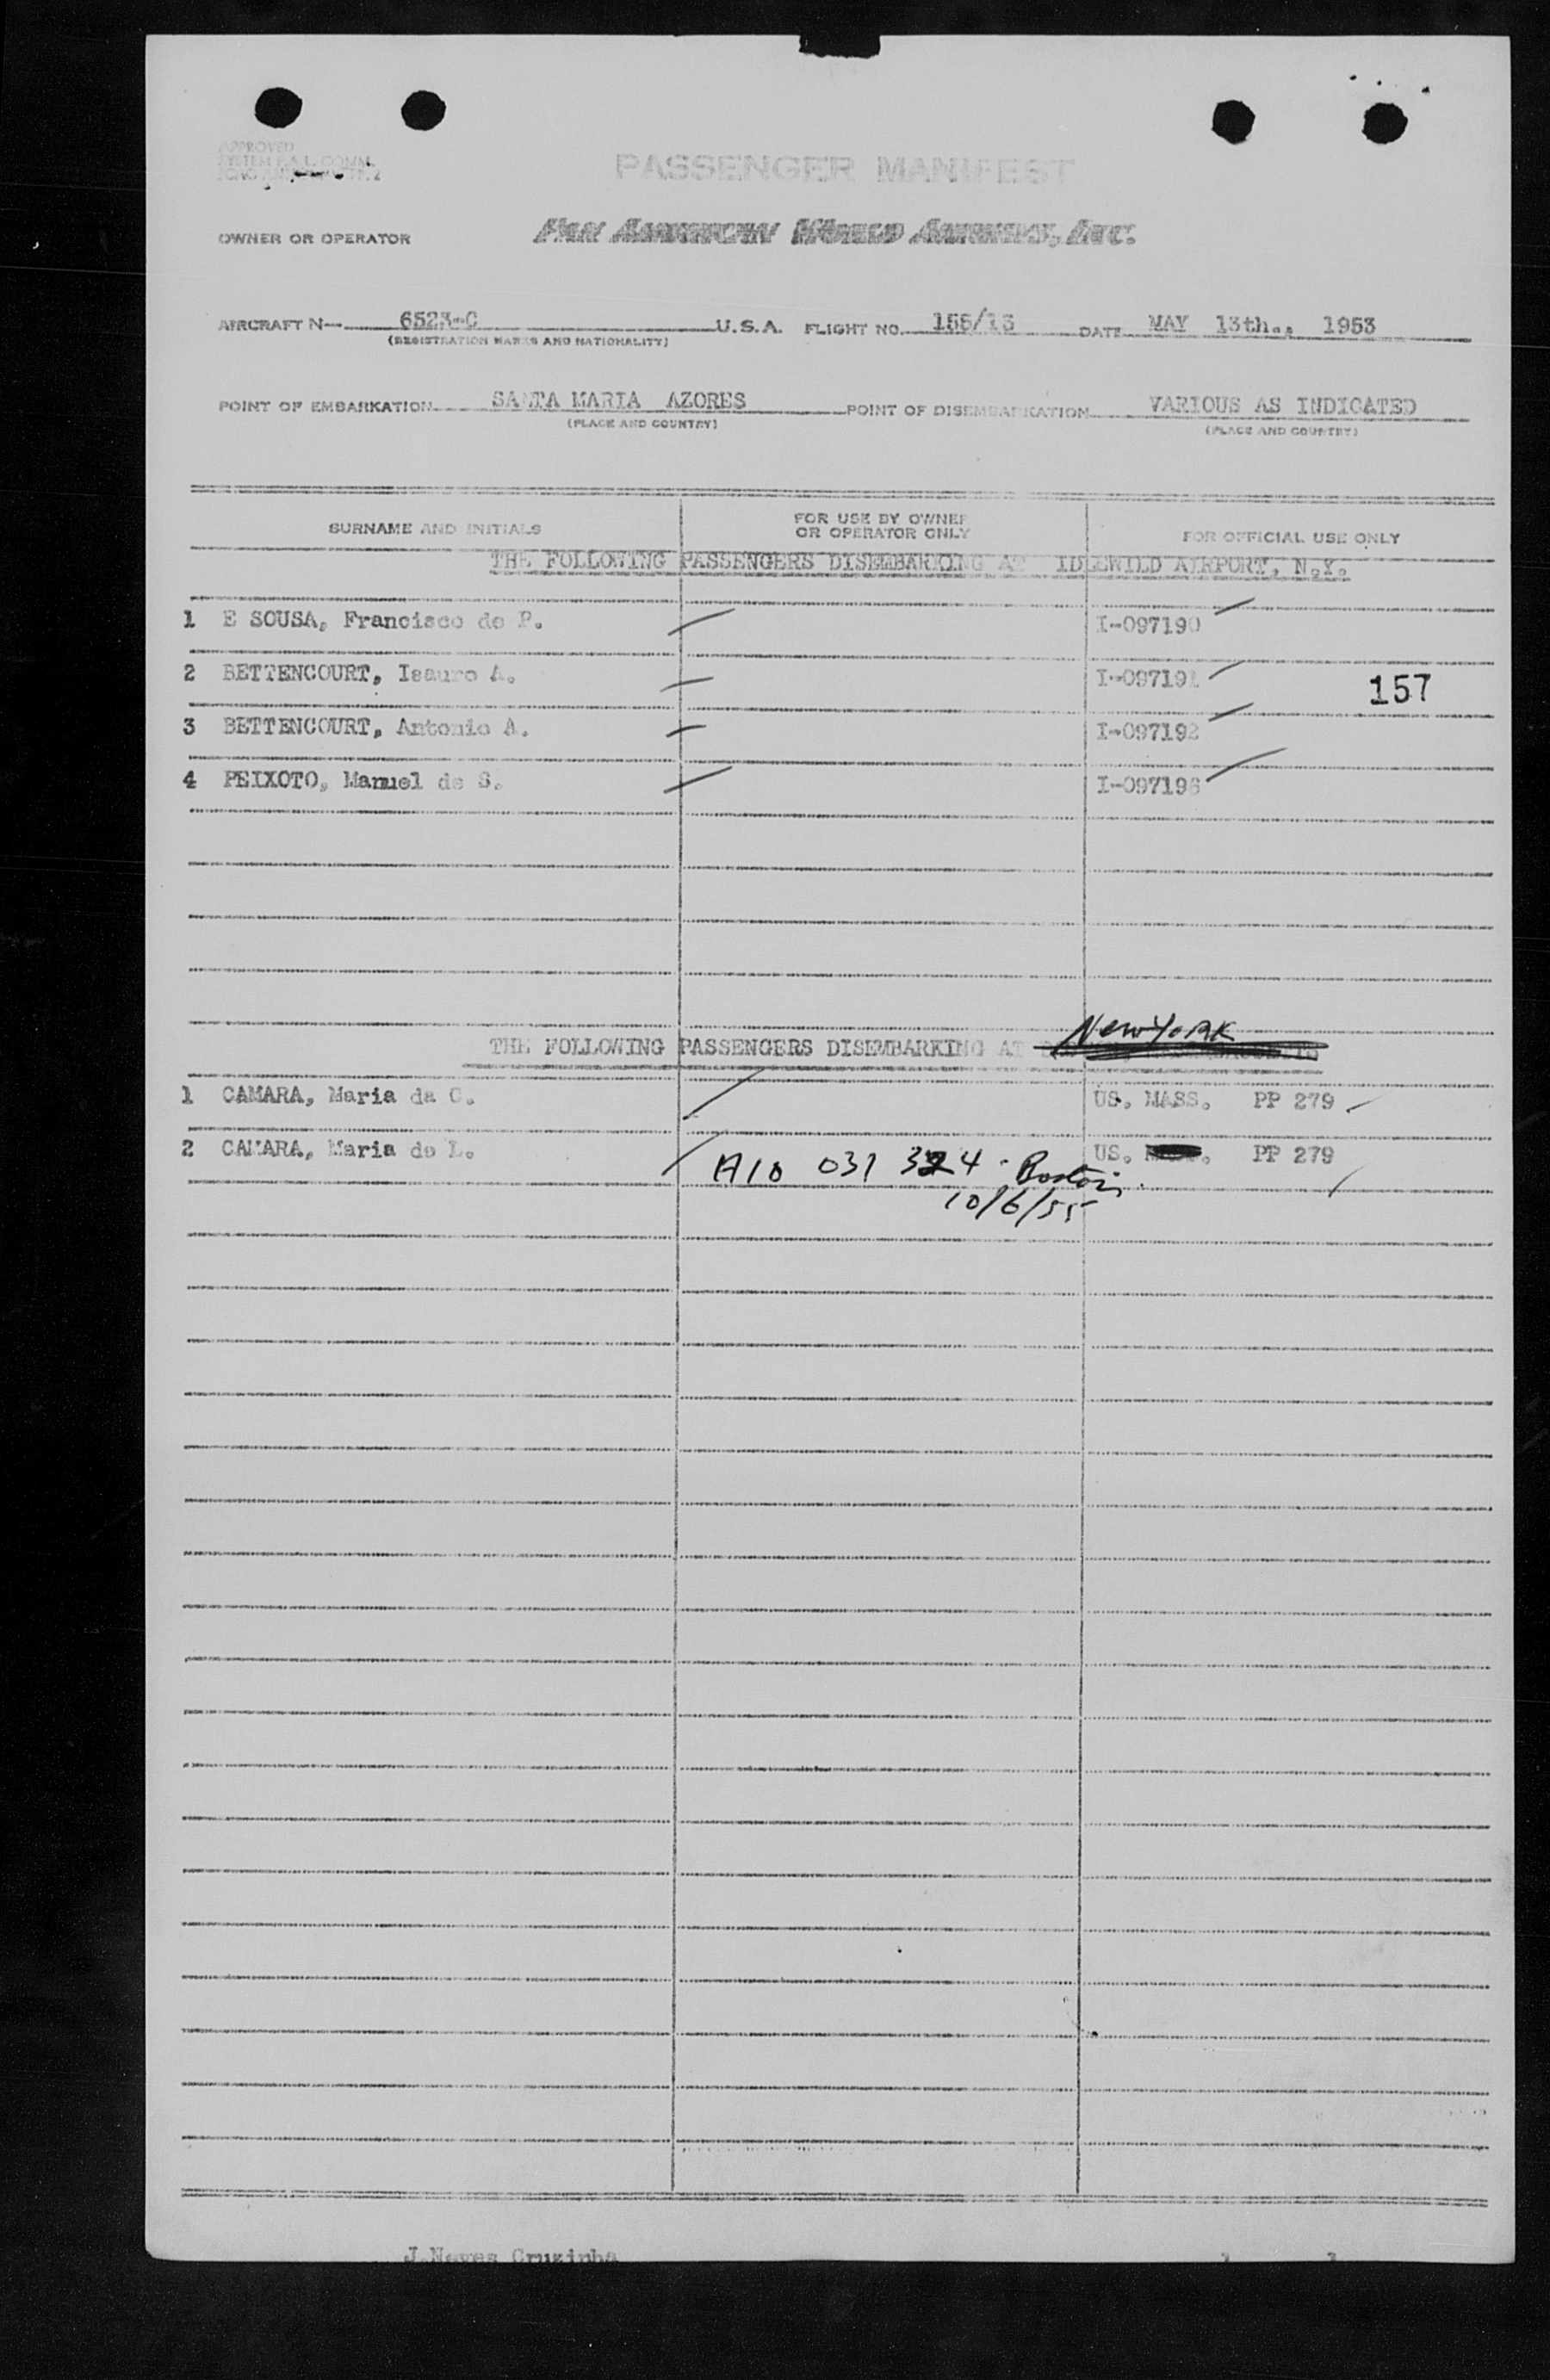 APPROVED
PASSENGER MANIFEST
OWNER OR OPERATOR PAN AMERICAN WORLD AIRWAYS, INC.
AIRCRAFT N— 6523-C U.S.A. FLIGHT NO. 155/13 DATE MAY 13th., 1953
(REGISTRATION MARKS AND NATIONALITY)
POINT OF EMBARKATION SANTA MARIA AZORES POINT OF DISEMBARKATION VARIOUS AS INDICATED
(PLACE AND COUNTRY) (PLACE AND COUNTRY)
SURNAME AND INITIALS FOR USE BY OWNER OR OPERATOR ONLY FOR OFFICIAL USE ONLY
THE FOLLOWING PASSENGERS DISEMBARKING AT IDLEWILD AIRPORT, N.Y.
1 E SOUSA, Francisco de P. I-097190
2 BETTENCOURT, Isauro A. I-097191
157
3 BETTENCOURT, Antonio A. I-097192
4 PEIXOTO, Manuel de S. I-097196
New York
THE FOLLOWING PASSENGERS DISEMBARKING AT
1 CAMARA, Maria da C. US. MASS. PP 279
2 CAMARA, Maria de L. US. PP 279
A10 031 324 - Boston
10/6/55
J.Neves Cruzinha